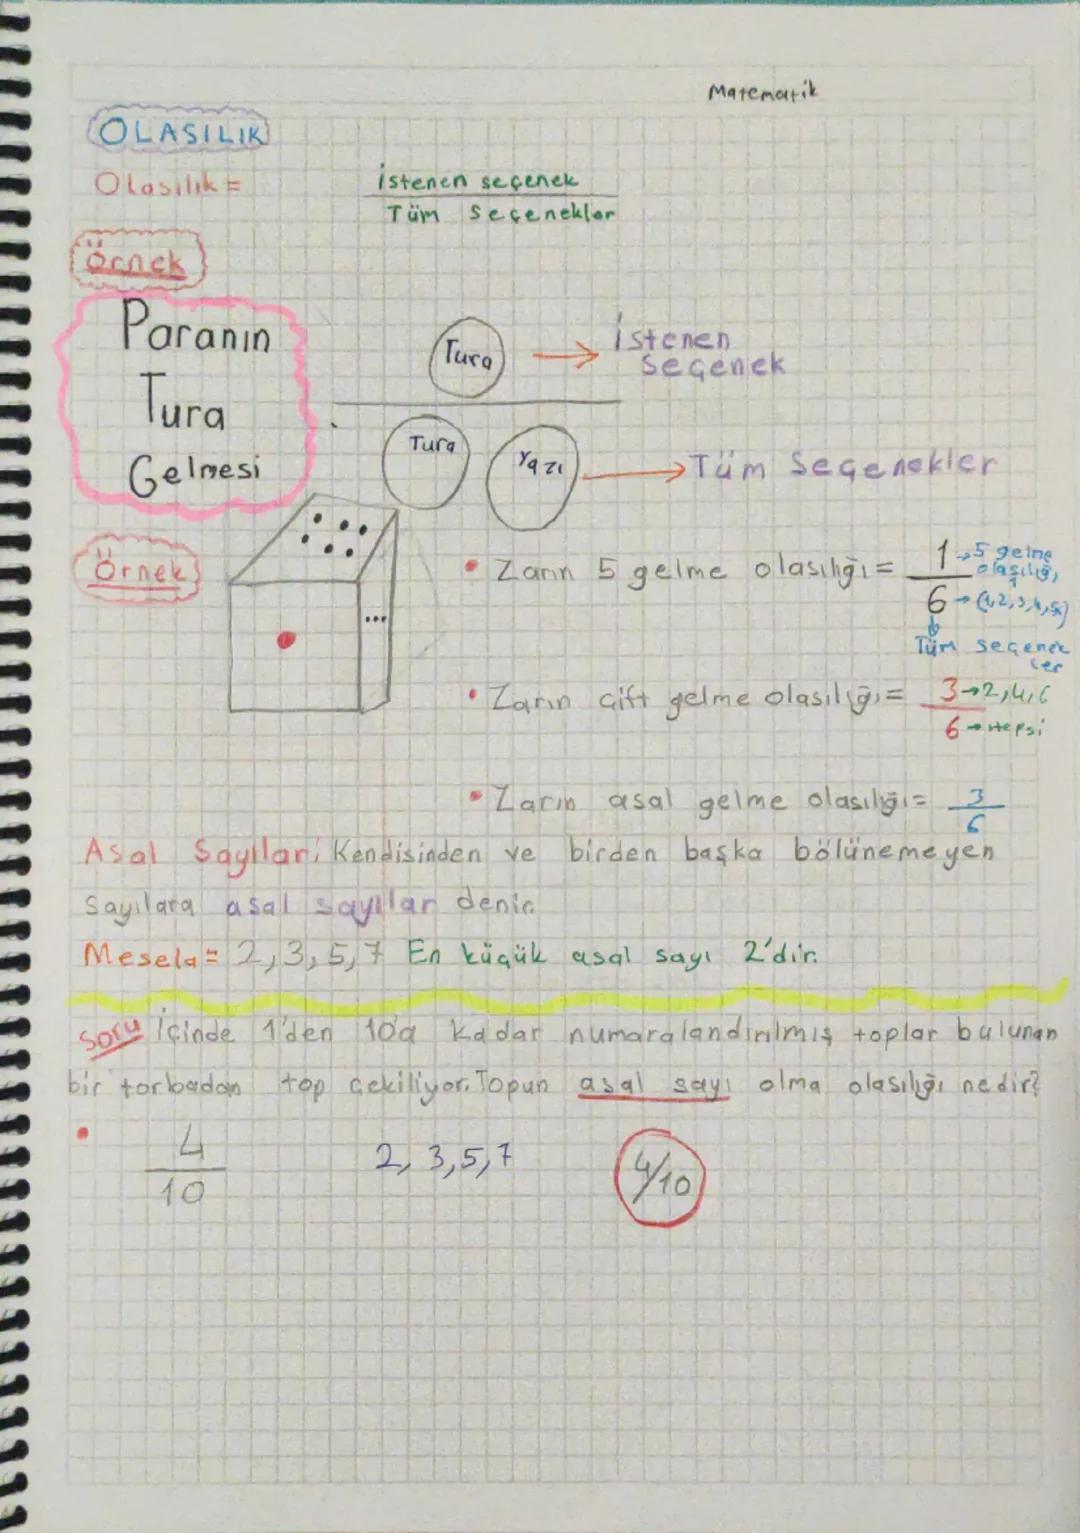 Matematik
OLASILIK
Olasılık = İstenen seçenek
Tüm Seçenekler
Örnek
Paranın
Tura
Gelmesi
Tura → İstenen
Seçenek
Tura Yazı → Tüm Seçenekler
Örnek
• Zarın 5 gelme olasılığı = 1 → 5 gelme
olasılığı
6 → (1,2,3,4,5,6)
Tüm seçenek
ler
• Zarın çift gelme olasılığı = 3 → 2,4,6
6 → Hepsi
• Zarın asal gelme olasılığı = 3
6
Asal Sayılar: Kendisinden ve birden başka bölünemeyen
sayılara asal sayılar denir.
Mesela = 2,3,5,7 En küçük asal sayı 2'dir.
Soru İçinde 1'den 10'a kadar numaralandırılmış toplar bulunan
bir torbadan top çekiliyor. Topun asal sayı olma olasılığı nedir?
• 4 2, 3,5,7 4/10
10